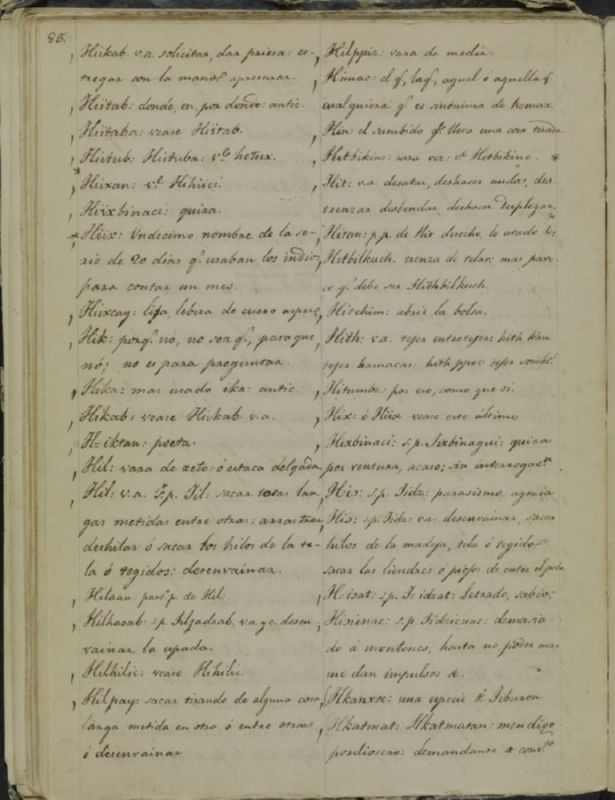 85.
Hiikab. v.a. solicitar, dar priesa: es-
tregar con la mano apresurar.
Hiitab: donde, en, por donde: antic.
Hiitaba: vease Hiitab.
Hiitub: Hiituba: ve hetux.
Hiixan: ve Hihiici.
Hiixbinaci: quiza.
Hiix: Undecimo nombre de la se-
rie de 20 dias q. usaban los indios
para contar un mes.
Hiixcay: lija, lebisa de cuero aspero
Hik: porq. no, no sea q., para que
nó; no es para preguntar.
Hika: mas usado ika: antic.
Hikab: vease Hiikab v.a.
H=iktan: poeta.
Hil: vara de reto: ó estaca delgada
Hil: v.a. s.p. Jil: sacar cosas lar-
gas metidas entre otras: arrastrar
deshilar ó sacar los hilos de la te-
la ó tegidos: desenvainar.
Hilaan part. p. de Hil.
Hilhasab: s.p. v.a. ye. desen-
vainar la espada.
Hilhilic: vease Hihilic.
Hilpay: sacar tirando de alguna cosa
larga metida en otra ó entre otras
ó desenvainar
Hilppiz: vara de medir.
Himac: el q., la q., aquel o aquella q.
cualquiera q. es sinonimo de hemax
Hin: el sumbido q. lleva una cosa tirada
Hetbikine: rara vez: ve Hetbikine.
Hit: v.a. desatar, deshacer nudos, des
trenzar desbendar deshacer desplegar
Hitan: p.p. de Hix derecho, lo usado
Hitbilkuch. trenza de telar; mas pare-
ce q. debe ser Hithbilkuch
Hitchim: abrir la bolsa.
Hith: v.a. tejer entretejer: hith kan
tejer hamacas: hith ppoc tejer sombr.
Hitumbe: por eso, como que si
Hix: ó Hiix vease este ultimo
Hixbinaci: s.p. Jixbinaqui: quiza
por ventura, acaso; sin interrogacn.
Hiz: s.p. Jidz: parasismo, agonia
Hiz: s.p. Jidz: va. desenvainar, sacar
hilos de la madeja, tela ó tegidos
sacar las liendres o piojos de entre el pelo
H=izat: s.p. J=idzat: Letrado, sabio:
Hizienac: s.p. Jidzienac: demasia-
do á montones; harta no poder mas
me dan impulsos de.
Hkanxoc: una especie de Tiburon
Hkatmat: Hkatmatan: mendigo
pordiosero: demandante de convto